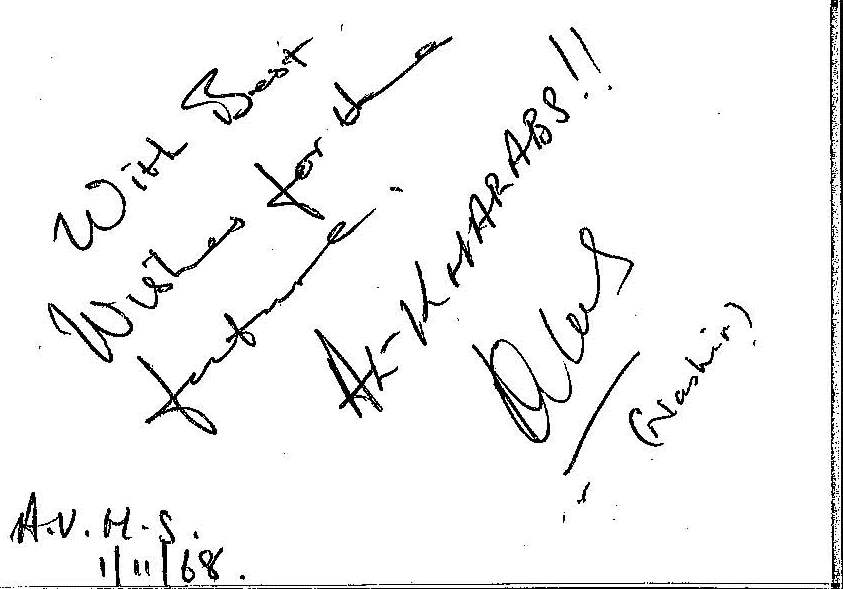 With Best
Wishes for the
future.
AK-KHARABS!!
(Nashir)
A.V.H.S.
1/11/68.